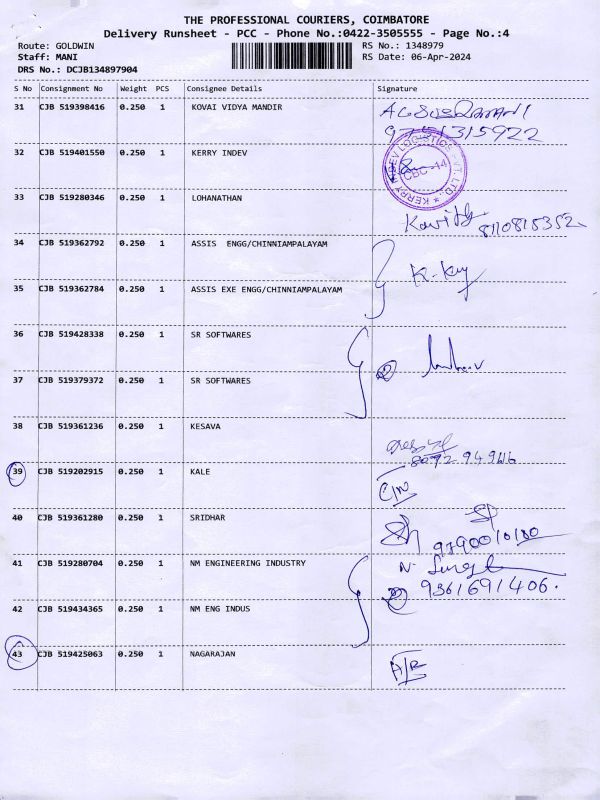 THE PROFESSIONAL COURIERS, COIMBATORE
Delivery Runsheet - PCC - Phone No.:0422-3505555 - Page No.:4
Route: GOLDWIN
RS No.: 1348979
Staff: MANI
RS Date: 06-Apr-2024
DRS No.: DCJB134897904
S No Consignment No Weight PCS Consignee Details Signature
31 CJB 519398416 0.250 1 KOVAI VIDYA MANDIR
32 CJB 519401550 0.250 1 KERRY INDEV
KERRY INDEV LOGISTICS PVT. LTD.,
CBC-14
33 CJB 519280346 0.250 1 LOHANATHAN
Kavitha 8110815352
34 CJB 519362792 0.250 1 ASSIS ENGG/CHINNIAMPALAYAM
35 CJB 519362784 0.250 1 ASSIS EXE ENGG/CHINNIAMPALAYAM
36 CJB 519428338 0.250 1 SR SOFTWARES
37 CJB 519379372 0.250 1 SR SOFTWARES
2
38 CJB 519361236 0.250 1 KESAVA
39 CJB 519202915 0.250 1 KALE
40 CJB 519361280 0.250 1 SRIDHAR
41 CJB 519280704 0.250 1 NM ENGINEERING INDUSTRY
9361691406.
42 CJB 519434365 0.250 1 NM ENG INDUS
2
43 CJB 519425063 0.250 1 NAGARAJAN